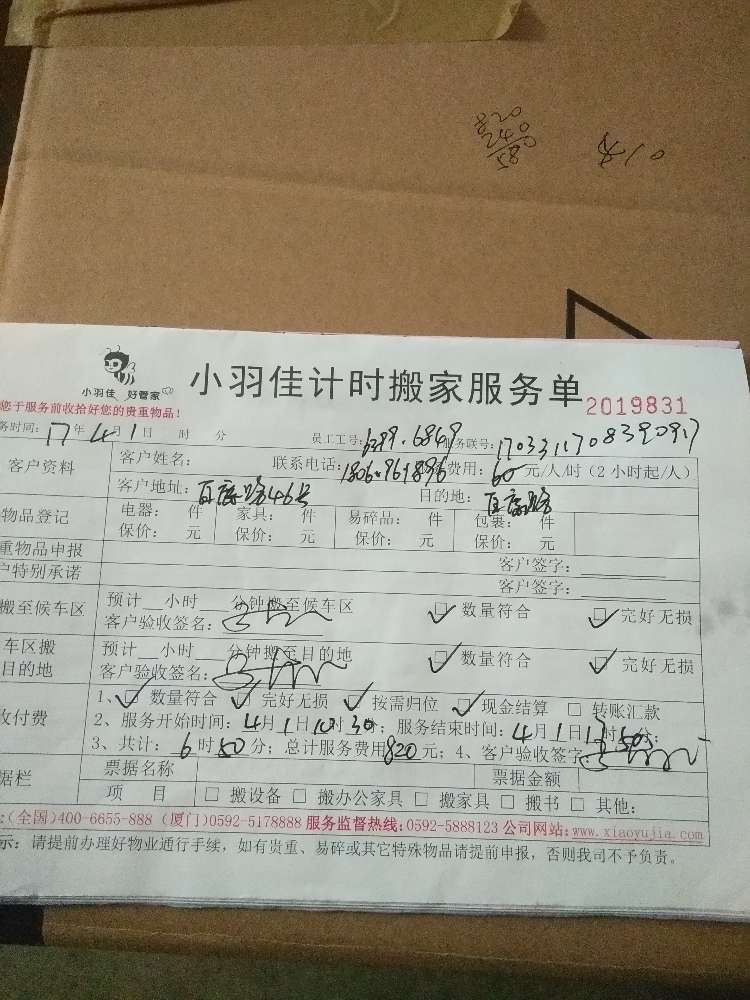 410
小羽佳 好管家
小羽佳计时搬家服务单 2019831
您于服务前收拾好您的贵重物品！
务时间：17年4月1日 时 分 员工工号：6399.6849 服务联号：1703311708390917
客户资料 客户姓名： 联系电话： 费用：60元/人/时（2小时起/人）
客户地址：百家路46号 目的地：
物品登记 电器： 件 家具： 件 易碎品： 件 包裹： 件
保价： 元 保价： 元 保价： 元 保价： 元
重物品申报 客户签字：
户特别承诺 客户签字：
搬至候车区 预计__小时__分钟搬至候车区 ☑数量符合 ☑完好无损
客户验收签名：
车区搬 预计__小时__分钟搬至目的地 ☑数量符合 ☑完好无损
目的地 客户验收签名：
收付费 1、☑数量符合 ☑完好无损 ☑按需归位 ☑现金结算 □转账汇款
2、服务开始时间：4月1日10时30分；服务结束时间：4月1日17时50分；
3、共计：6时50分；总计服务费用820元；4、客户验收签字：
据栏 票据名称 票据金额
项 目 □搬设备 □搬办公家具 □搬家具 □搬书 □其他：
：(全国)400-6655-888 (厦门)0592-5178888 服务监督热线：0592-5888123 公司网站：www.xiaoyujia.com
示：请提前办理好物业通行手续，如有贵重、易碎或其它特殊物品请提前申报，否则我司不予负责。